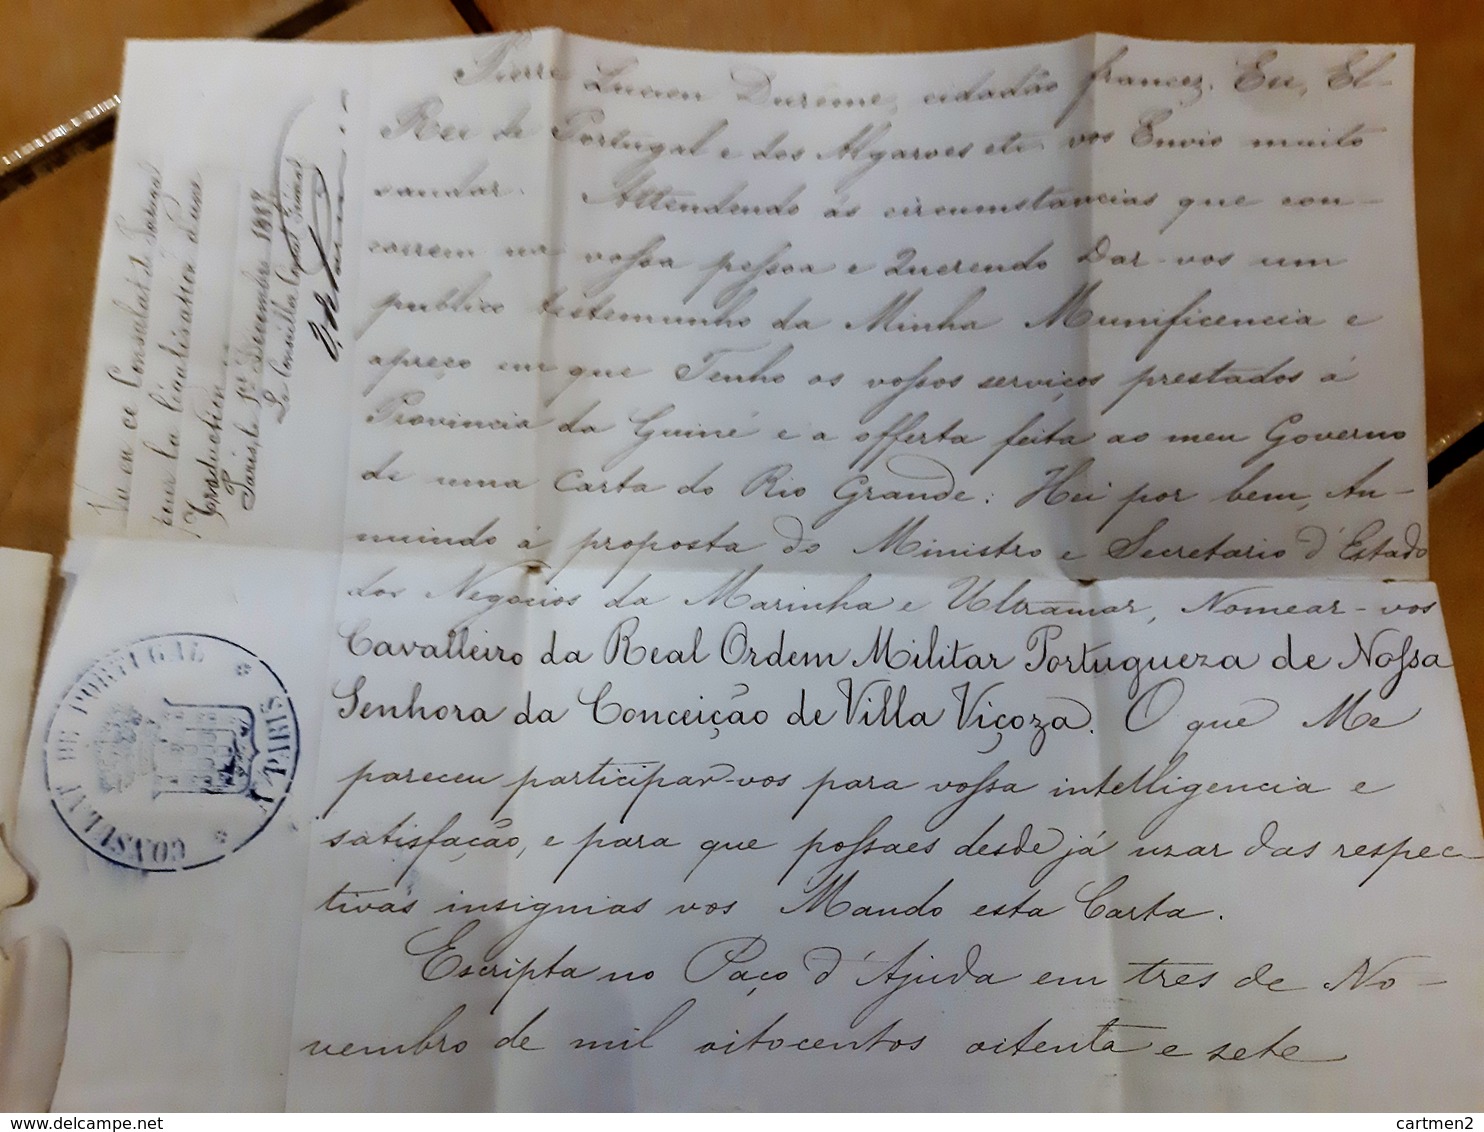 Pierre Lucien Durême, cidadão francez. Eu, El-
Rei de Portugal e dos Algarves etc vos Envio muito
saudar. Attendendo ás circumstancias que con-
correm na vossa pessoa e Querendo Dar-vos um
publico testemunho da Minha Munificencia e
apreço em que Tenho os vossos serviços prestados á
Provincia da Guiné e a offerta feita ao meu Governo
de uma Carta do Rio Grande: Hei por bem, An-
nuindo á proposta do Ministro e Secretario d'Estado
dos Negocios da Marinha e Ultramar, Nomear-vos
Cavalleiro da Real Ordem Militar Portugueza de Nossa
Senhora da Conceição de Villa Viçoza. O que Me
pareceu participar-vos para vossa intelligencia e
satisfação, e para que possaes desde já uzar das respec-
tivas insignias vos Mando esta Carta.
Escripta no Paço d'Ajuda em tres de No-
vembro de mil oitocentos oitenta e sete
Vu en ce Consulat de Portugal
pour la légalisation d'une
Traduction
Paris le 1er Décembre 1887
Le
CONSULAT DE PORTUGAL * A PARIS *
https://www.delcampe.net
cartmen2